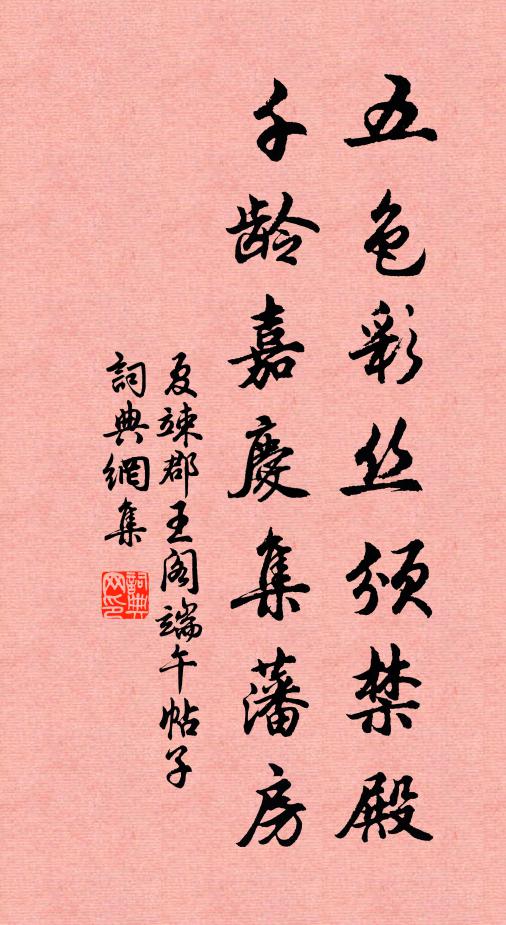 五色彩丝颁禁殿
千龄嘉慶集藩房
夏竦郡王阁端午帖子
詞典網集
詞典网印